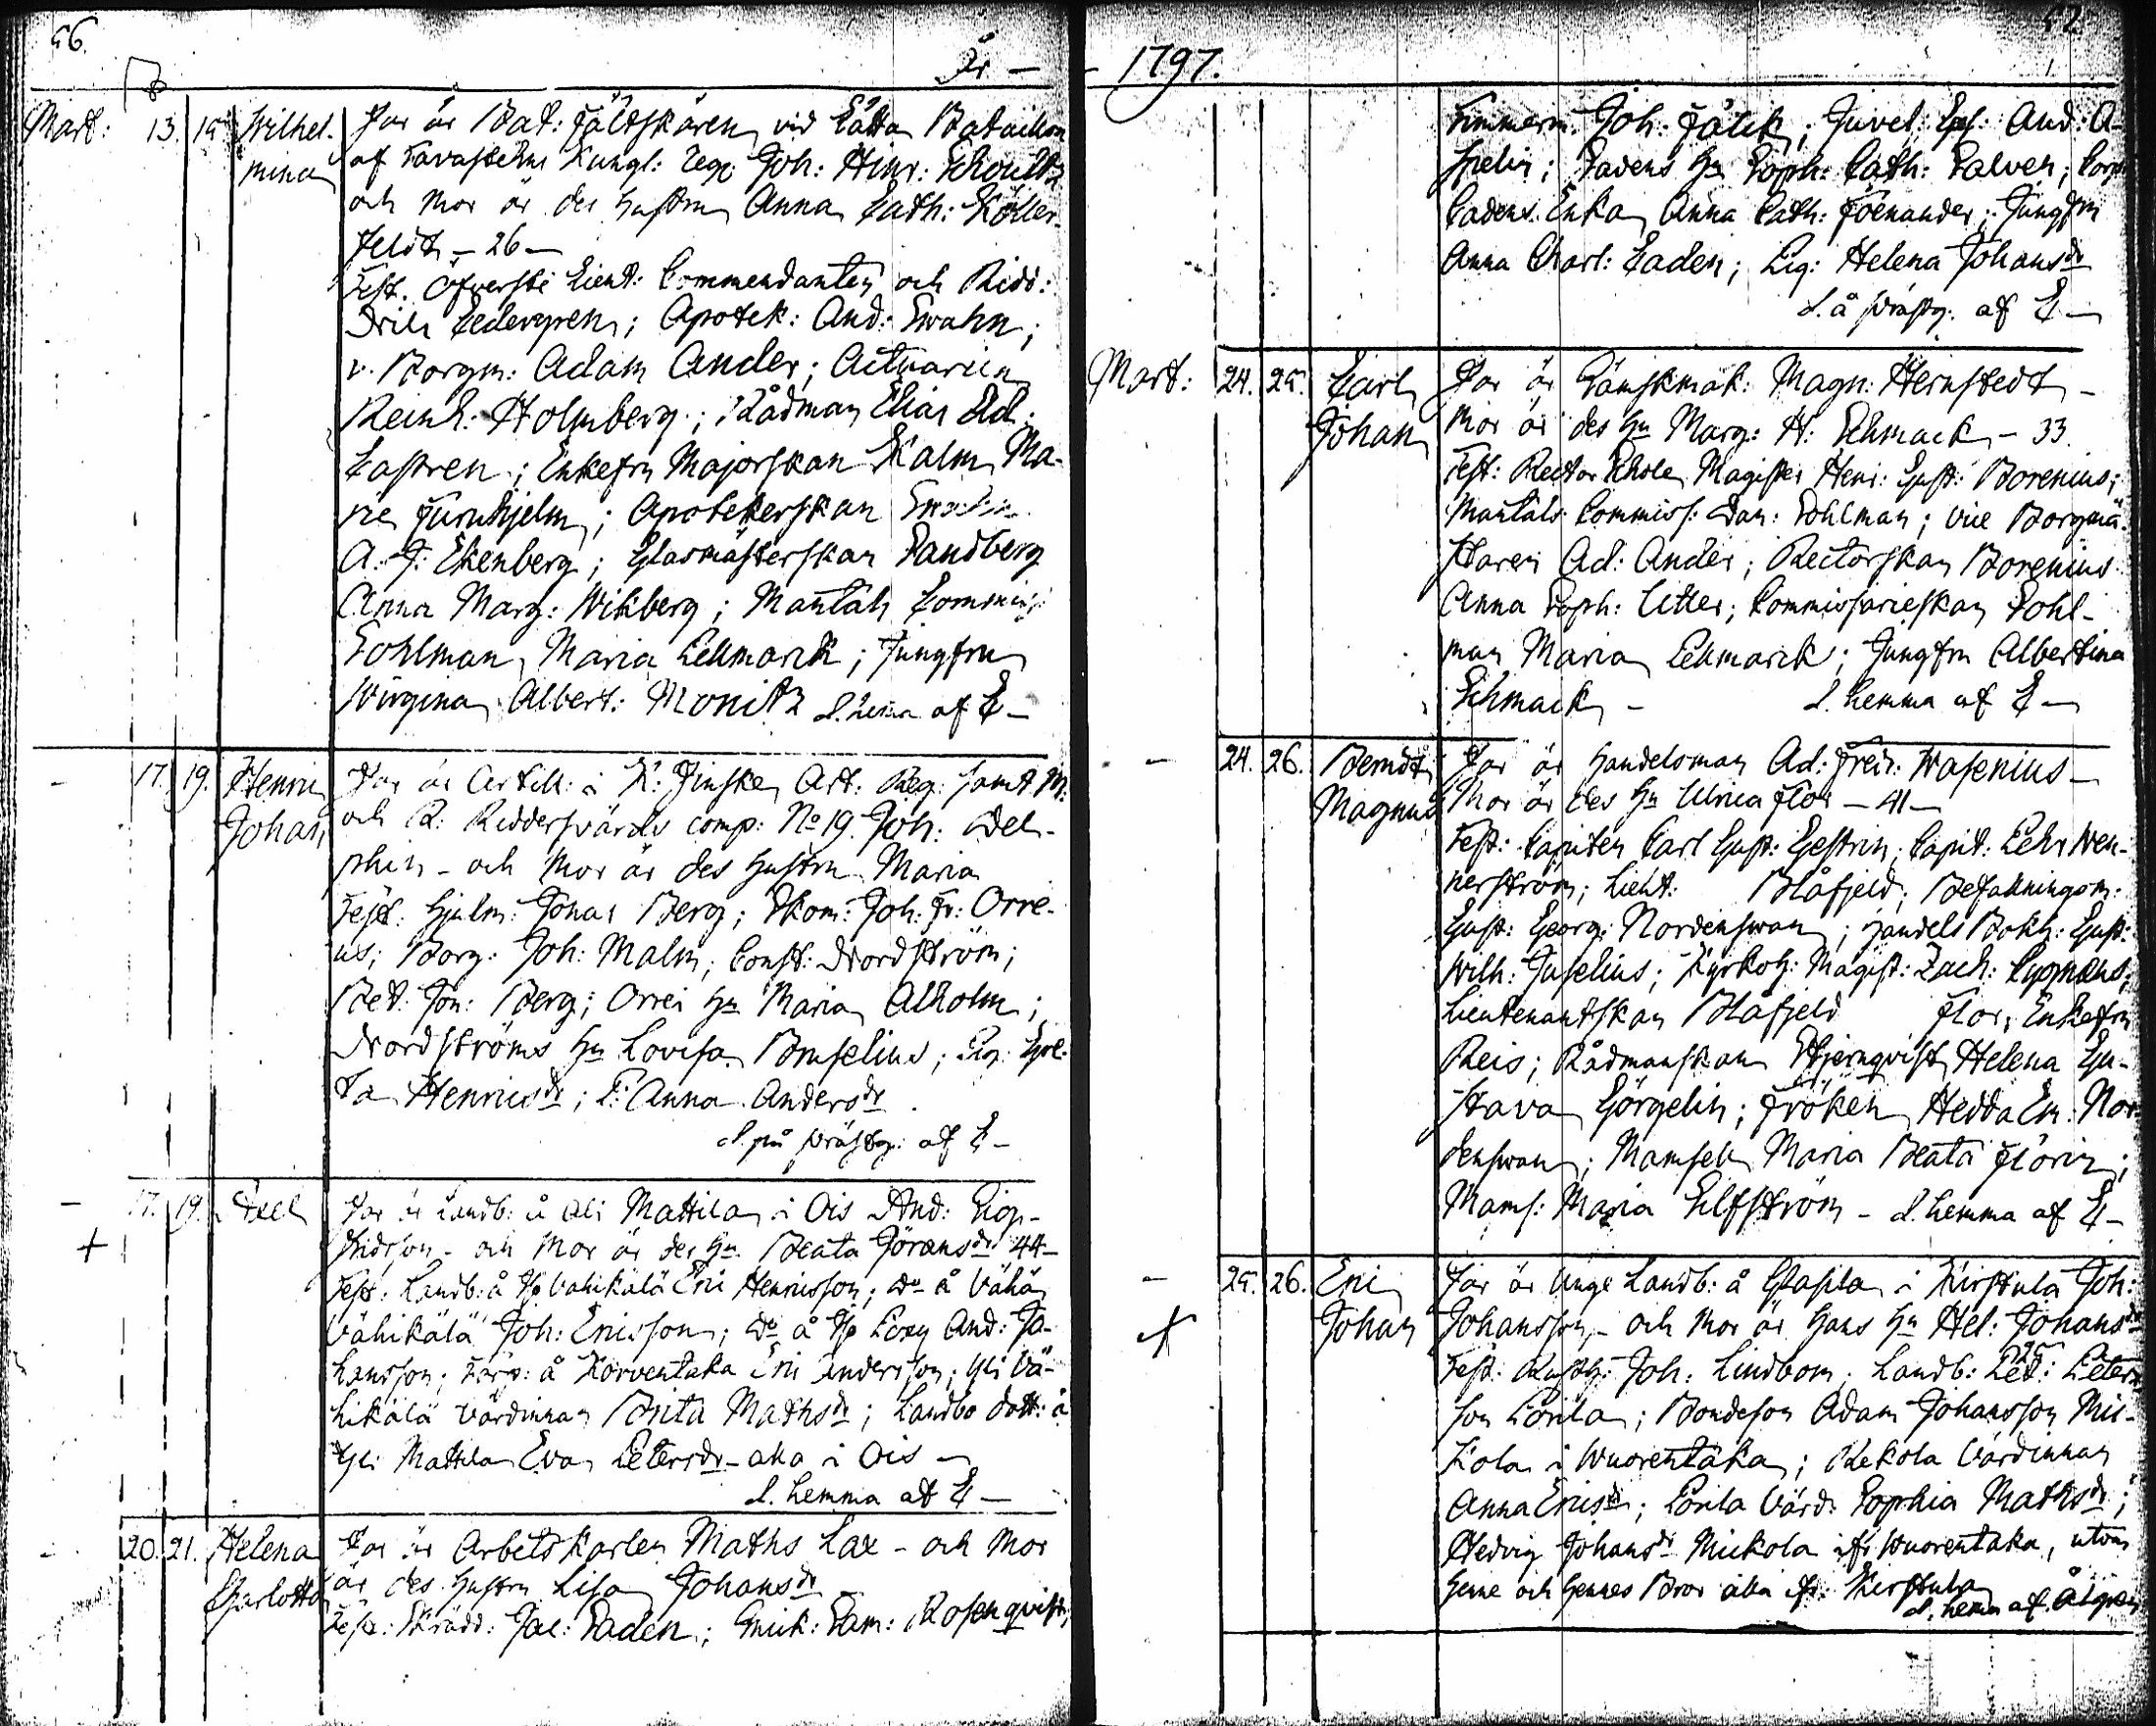 56.
År —
Mart: 13. 15. Wilhel-
mina
Far är Bat: fältskären vid Lätta Batailion
af Tavastehus Kungl: Reg: Joh: Hinr: Schoultz
och Mor är des hustru Anna Cath: Köller-
feldt – 26 –
Test. Öfverste Lieut: Commendanten och Ridd:
Cedergren; Apotek: And: Swahn;
v. Borgm: Adam Ander; Actuarien
Reinh: Holmberg; Rådman Elias Ad:
Castren; Enkefru Majorskan Kalm Ma-
ria Furuhjelm; Apotekerskan Swahn
A. J: Ekenberg; Glasmästerskan Sandberg
Anna Marg: Wikberg; Mantals Commiss:
Sohlman, Maria Eckmarck; Jungfru
Virgina Albert: Monitz d. hema af E –
– 17. 19. Henric
Johan
Far är Artill: i K: Finska Art: Reg: samt M:
och R: Riddersvärds comp: No 19. Joh: Del-
phin – och Mor är des hustru Maria
Test: Joh: Fr: Orre-
us; Borg: Joh: Malm; Const: Nordström;
Bet: Jon: Berg; Orrei Hu Maria Alholm;
Nordströms Hu Lovisa Bruselius; Pig: Gre-
ta Henricsdr; P: Anna Andersdr
d. på prästg: af E –
– 17. 19. Axel
+
Far är Landb: å Ali Mattila i Ois And: Sig-
fridsson – och Mor är des Hu Beata Göransdr 44 –
Test: Landb: å Vähikälä Eric Henricsson; Do å Vähä
Vähikälä Joh: Ericsson; Do å And: Jo-
hansson; å Korventaka Eric Andersson; Yli Vä-
hikälä Värdinnan Brita Mathsdr; Landbo dott: å
Yli Mattila Eva Petersdr – alla i Ois –
d. hemma af E –
– 20. 21. Helena
Charlotta
Far är Arbetskarlen Maths Lax – och Mor
är des hustru Lisa Johansdr
Test: Skrädd: Jac: Saden; Sam: Rosenqvist;
– 1797.
52
Timmerm: Joh: Fälck; Juvel: Ges: And: A-
spelin; Sadens Hu Soph: Cath: Salven; Corp:
Cadens Enka Anna Cath: Foenander; Jungfru
Anna Charl: Caden; Pig: Helena Johansdr
d. å prästg. af E –
Mart: 24. 25. Carl
Johan
Far är Sämskmak: Magn: Hernstedt –
Mor är des Hu Marg: H: Schmack – 33.
Test: Rector Schole Magister Henr: Gust: Borenius;
Mantals Commiss: Dan: Sohlman; vice Borgmä-
staren Ad: Ander; Rectorskan Borenius
Anna Soph: Utter; Commissarieskan Sohl-
man Maria Eckmarck; Jungfru Albertina
Schmack – d. hemma af E –
– 24. 26. Berndt
Magnus
Far är Handelsman Ad: Fredr: Wasenius –
Mor är des Hu Ulrica Flor – 41 –
Test: Capiten Carl Gust: Gestrin; Capit: Pehr Wen-
nerström; Lieut: Blåfjeld; Befallningsm:
Gust: Georg: Nordenswan; Handels Bokh: Gust:
Wilh: Juselius; Kyrkoh: Magist: Zach: Cygnæus;
Lieutenantskan Blåfjeld Flor; Enkefru
Reis; Rådmanskan Stjernqvist Helena Gu-
stava Görgelin; Fröken Hedda Em: Nor-
denswan; Mamsell Maria Beata Florin;
Mams: Maria Elfström – d. hemma af E –
– 25. 26. Eric
Johan
+
Far är Unge Landb: å Glasila i Kirstula Joh:
Johansson – och Mor är Hans Hu Hel: Johansdr
25
Test: Rusth: Joh: Lindbom; Landb: Pet: Peters-
son Lorila; Bondeson Adam Johansson Mic-
kola i Wuorentaka; Kekola Värdinnan
Anna Ericsdr; Lorila Värd: Sophia Mathsdr;
Hedvig Johansdr Mickola ifr Wuorentaka, utom
henne och hennes Bror alla fr: Kirstula
d. hemma af Ålgren